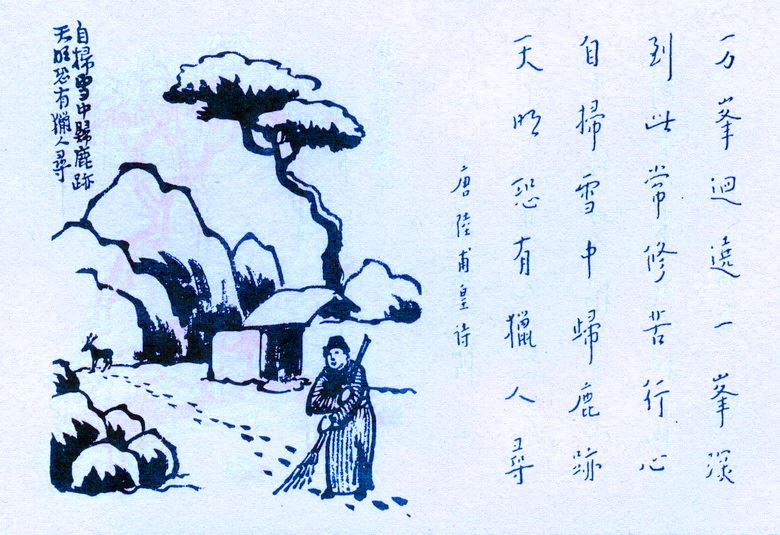 万峯迴遶一峯深
到此常修苦行心
自掃雪中歸鹿跡
天明恐有獵人尋
唐陸甫皇诗
自掃雪中歸鹿跡
天明恐有獵人尋